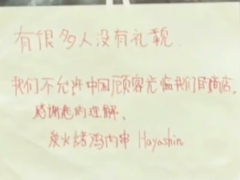 有很多人没有礼貌
我们不允许中国顾客光临我们的商店。
感谢您的理解、
炭火烤鸡肉串 Hayashin